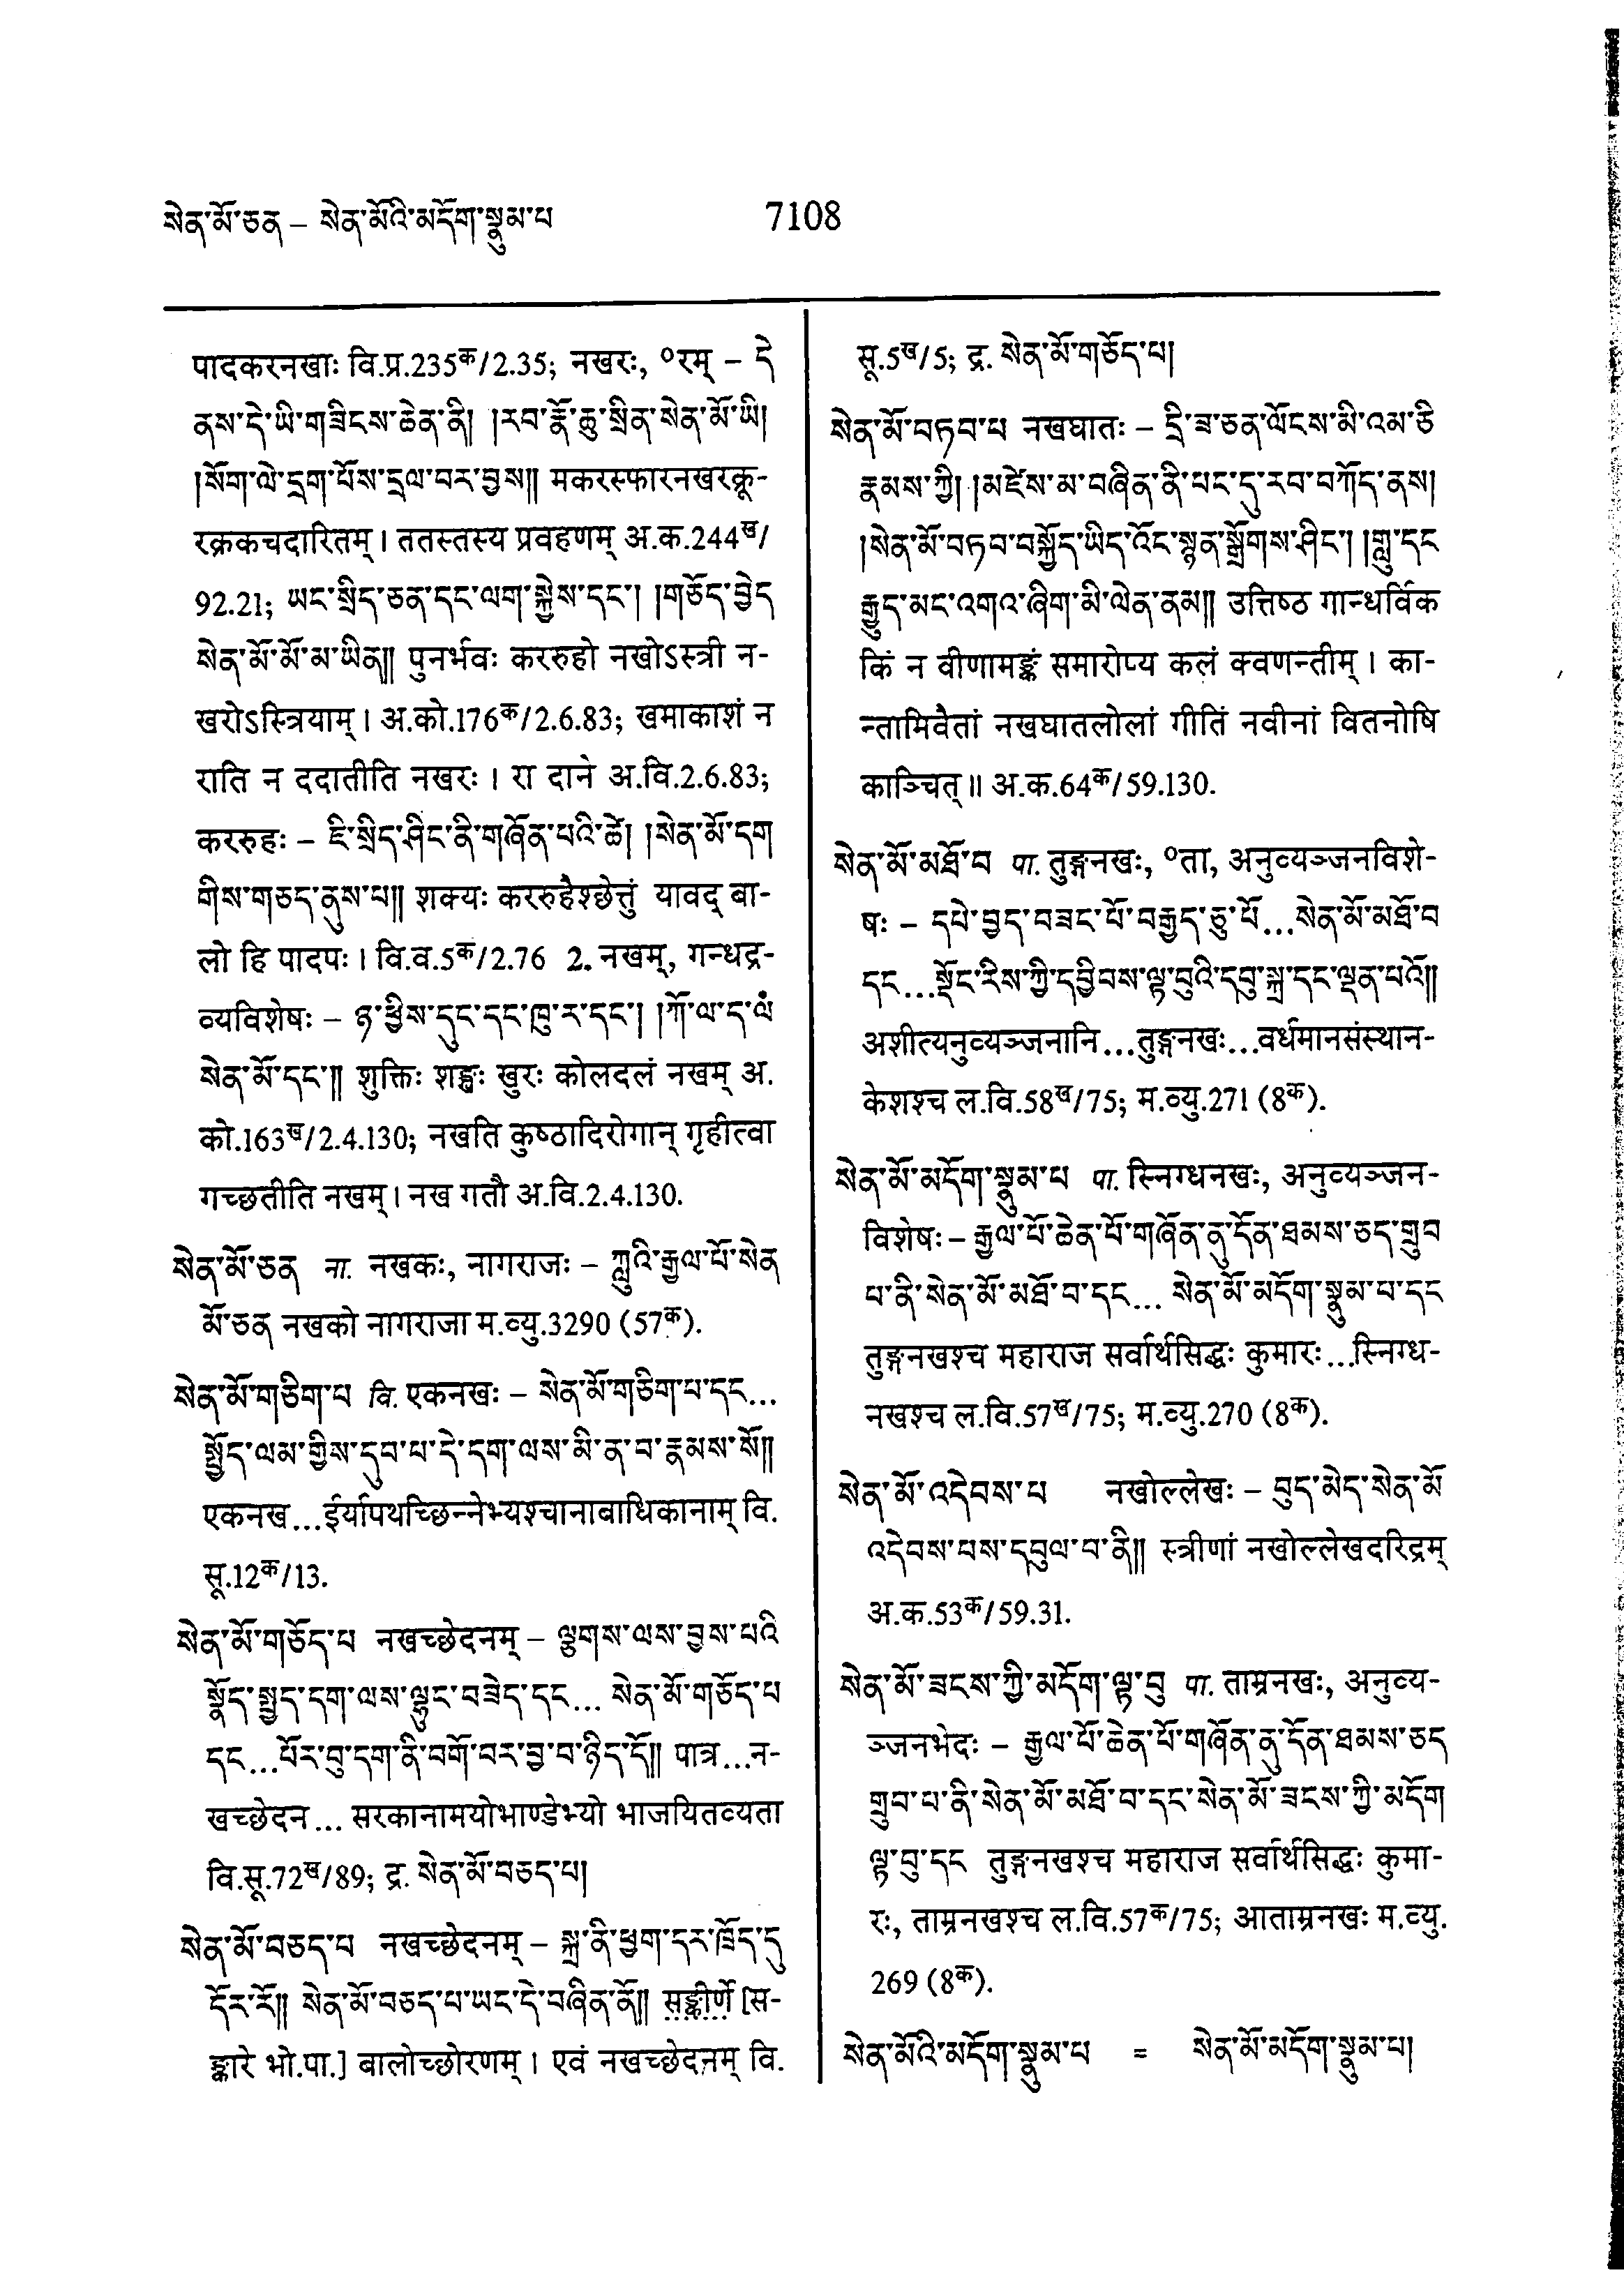 སེན་མོ་ཅན – སེན་མོའི་མདོག་སྣུམ་པ
7108
पादकरनखाः वि.प्र.235क/2.35; नखरः, ०रम् – དེ
ནས་དེ་ཡི་གཟིངས་ཆེན་ནི། །རབ་རྣོ་ཆུ་སྲིན་སེན་མོ་ཡི།
།སོག་ལེ་དྲག་པོས་དྲལ་བར་བྱས།། मकरस्फारनखरक्रू-
रक्रकचदारितम् । ततस्तस्य प्रवहणम् अ.क.244ख/
92.21; ཡང་སྲིད་ཅན་དང་ལག་སྐྱེས་དང་། །གཅོད་བྱེད
སེན་མོ་མོ་མ་ཡིན།། पुनर्भवः कररुहो नखोऽस्त्री न-
खरोऽस्त्रियाम् । अ.को.176क/2.6.83; खमाकाशं न
राति न ददातीति नखरः । रा दाने अ.वि.2.6.83;
कररुहः – ཇི་སྲིད་ཤིང་ནི་གཞོན་པའི་ཚེ། །སེན་མོ་དག
གིས་གཅད་ནུས་པ།། शक्यः कररुहैश्छेत्तुं यावद् बा-
लो हि पादपः । वि.व.5क/2.76 2. नखम्, गन्धद्र-
व्यविशेषः – ཉ་ཕྱིས་དུང་དང་ཁུ་ར་དང་། །ཀོ་ལ་ད་ལཾ
སེན་མོ་དང་།། शुक्तिः शङ्खः खुरः कोलदलं नखम् अ.
को.163ख/2.4.130; नखति कुष्ठादिरोगान् गृहीत्वा
गच्छतीति नखम् । नख गतौ अ.वि.2.4.130.
སེན་མོ་ཅན ना. नखकः, नागराजः – ཀླུའི་རྒྱལ་པོ་སེན
མོ་ཅན नखको नागराजा म.व्यु.3290 (57क).
སེན་མོ་གཅིག་པ वि. एकनखः – སེན་མོ་གཅིག་པ་དང...
སྤྱོད་ལམ་གྱིས་དུབ་པ་དེ་དག་ལས་མི་ན་བ་རྣམས་སོ།།
एकनख...ईर्यापथच्छिन्नेभ्यश्चानाबाधिकानाम् वि.
सू.12क/13.
སེན་མོ་གཅོད་པ नखच्छेदनम् – ལྕགས་ལས་བྱས་པའི
སྣོད་སྤྱད་དག་ལས་ལྷུང་བཟེད་དང... སེན་མོ་གཅོད་པ
དང...པོར་བུ་དག་ནི་བགོ་བར་བྱ་བ་ཉིད་དོ།། पात्र...न-
खच्छेदन... सरकानामयोभाण्डेभ्यो भाजयितव्यता
वि.सू.72ख/89; द्र. སེན་མོ་བཅད་པ།
སེན་མོ་བཅད་པ नखच्छेदनम् – སྐྲ་ནི་ཕྱག་དར་ཁྲོད་དུ
དོར་རོ།། སེན་མོ་བཅད་པ་ཡང་དེ་བཞིན་ནོ།། सङ्कीर्णे [स-
ङ्कारे भो.पा.] बालोच्छोरणम् । एवं नखच्छेदनम् वि.
सू.5ख/5; द्र. སེན་མོ་གཅོད་པ།
སེན་མོ་བཏབ་པ नखघातः – དྲི་ཟ་ཅན་ལོངས་མི་འམ་ཅི
རྣམས་ཀྱི། །མཛེས་མ་བཞིན་ནི་པང་དུ་རབ་བཀོད་ནས།
།སེན་མོ་བཏབ་བསྐྱོད་ཡིད་འོང་སྙན་སྒྲོགས་ཤིང་། །གླུ་དང
རྒྱུད་མང་འགའ་ཞིག་མི་ལེན་ནམ།། उत्तिष्ठ गान्धर्विक
किं न वीणामङ्कं समारोप्य कलं क्वणन्तीम् । का-
न्तामिवैतां नखघातलोलां गीतिं नवीनां वितनोषि
काञ्चित् ॥ अ.क.64क/59.130.
སེན་མོ་མཐོ་བ पा. तुङ्गनखः, ०ता, अनुव्यञ्जनविशे-
षः – དཔེ་བྱད་བཟང་པོ་བརྒྱད་ཅུ་པོ...སེན་མོ་མཐོ་བ
དང...སྡོང་རིས་ཀྱི་དབྱིབས་ལྟ་བུའི་དབུ་སྐྲ་དང་ལྡན་པའོ།།
अशीत्यनुव्यञ्जनानि...तुङ्गनखः...वर्धमानसंस्थान-
केशश्च ल.वि.58ख/75; म.व्यु.271 (8क).
སེན་མོ་མདོག་སྣུམ་པ पा. स्निग्धनखः, अनुव्यञ्जन-
विशेषः – རྒྱལ་པོ་ཆེན་པོ་གཞོན་ནུ་དོན་ཐམས་ཅད་གྲུབ
པ་ནི་སེན་མོ་མཐོ་བ་དང... སེན་མོ་མདོག་སྣུམ་པ་དང
तुङ्गनखश्च महाराज सर्वार्थसिद्धः कुमारः...स्निग्ध-
नखश्च ल.वि.57ख/75; म.व्यु.270 (8क).
སེན་མོ་འདེབས་པ नखोल्लेखः – བུད་མེད་སེན་མོ
འདེབས་པས་དབུལ་བ་ནི།། स्त्रीणां नखोल्लेखदरिद्रम्
अ.क.53क/59.31.
སེན་མོ་ཟངས་ཀྱི་མདོག་ལྟ་བུ पा. ताम्रनखः, अनुव्य-
ञ्जनभेदः – རྒྱལ་པོ་ཆེན་པོ་གཞོན་ནུ་དོན་ཐམས་ཅད
གྲུབ་པ་ནི་སེན་མོ་མཐོ་བ་དང་སེན་མོ་ཟངས་ཀྱི་མདོག
ལྟ་བུ་དང तुङ्गनखश्च महाराज सर्वार्थसिद्धः कुमा-
रः, ताम्रनखश्च ल.वि.57क/75; आताम्रनखः म.व्यु.
269 (8क).
སེན་མོའི་མདོག་སྣུམ་པ = སེན་མོ་མདོག་སྣུམ་པ།